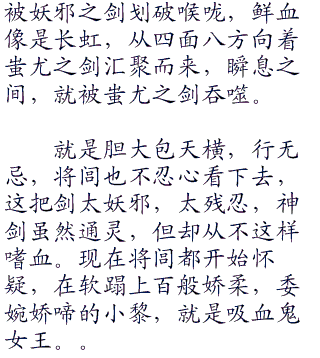 被妖邪之剑划破喉咙，鲜血
像是长虹，从四面八方向着
蚩尤之剑汇聚而来，瞬息之
间，就被蚩尤之剑吞噬。
就是胆大包天横，行无
忌，将闾也不忍心看下去，
这把剑太妖邪，太残忍，神
剑虽然通灵，但却从不这样
嗜血。现在将闾都开始怀
疑，在软蹋上百般娇柔，委
婉娇啼的小黎，就是吸血鬼
女王。。